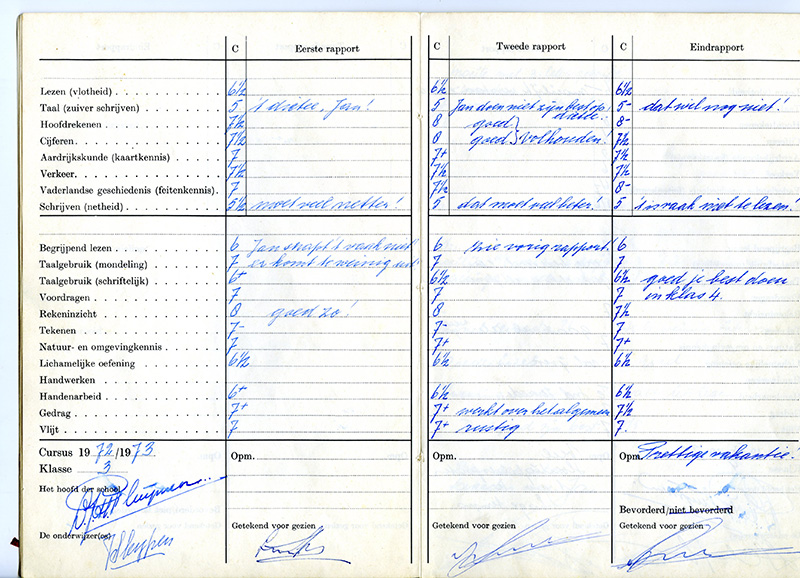 C Eerste rapport C Tweede rapport C Eindrapport
Lezen (vlotheid) 6½ 6½ 6½
Taal (zuiver schrijven) 5 't dictee, Jan! 5 Jan doet niet zijn best op! 5- dat wil nog niet!
Hoofdrekenen 7½ 8 goed 8-
Cijferen 7½ 8 goed } volhouden! 7½
Aardrijkskunde (kaartkennis) 7 7+ 7½
Verkeer 7½ 7½ 7½
Vaderlandse geschiedenis (feitenkennis) 7 7½ 8-
Schrijven (netheid) 5½ moet veel netter! 5 dat moet veel beter! 5 't is vaak niet te lezen!
Begrijpend lezen 6 Jan snapt 't vaak niet 6 zie vorig rapport! 6
Taalgebruik (mondeling) 7 er komt te weinig uit 7 7
Taalgebruik (schriftelijk) 6+ 6½ 6½ goed je best doen
Voordragen 7 7 7 in klas 4.
Rekeninzicht 8 goed zo! 8 7½
Tekenen 7- 7- 7
Natuur- en omgevingkennis 7 7+ 7+
Lichamelijke oefening 6½ 6½ 6½
Handwerken
Handenarbeid 6+ 6½ 6½
Gedrag 7+ 7+ werkt over het algemeen 7½
Vlijt 7 7+ rustig 7.
Cursus 1972/1973 Opm. Opm. Opm. Prettige vakantie!
Klasse 3
Het hoofd der school
Bevorderd/niet bevorderd
De onderwijzer(es) Getekend voor gezien Getekend voor gezien Getekend voor gezien